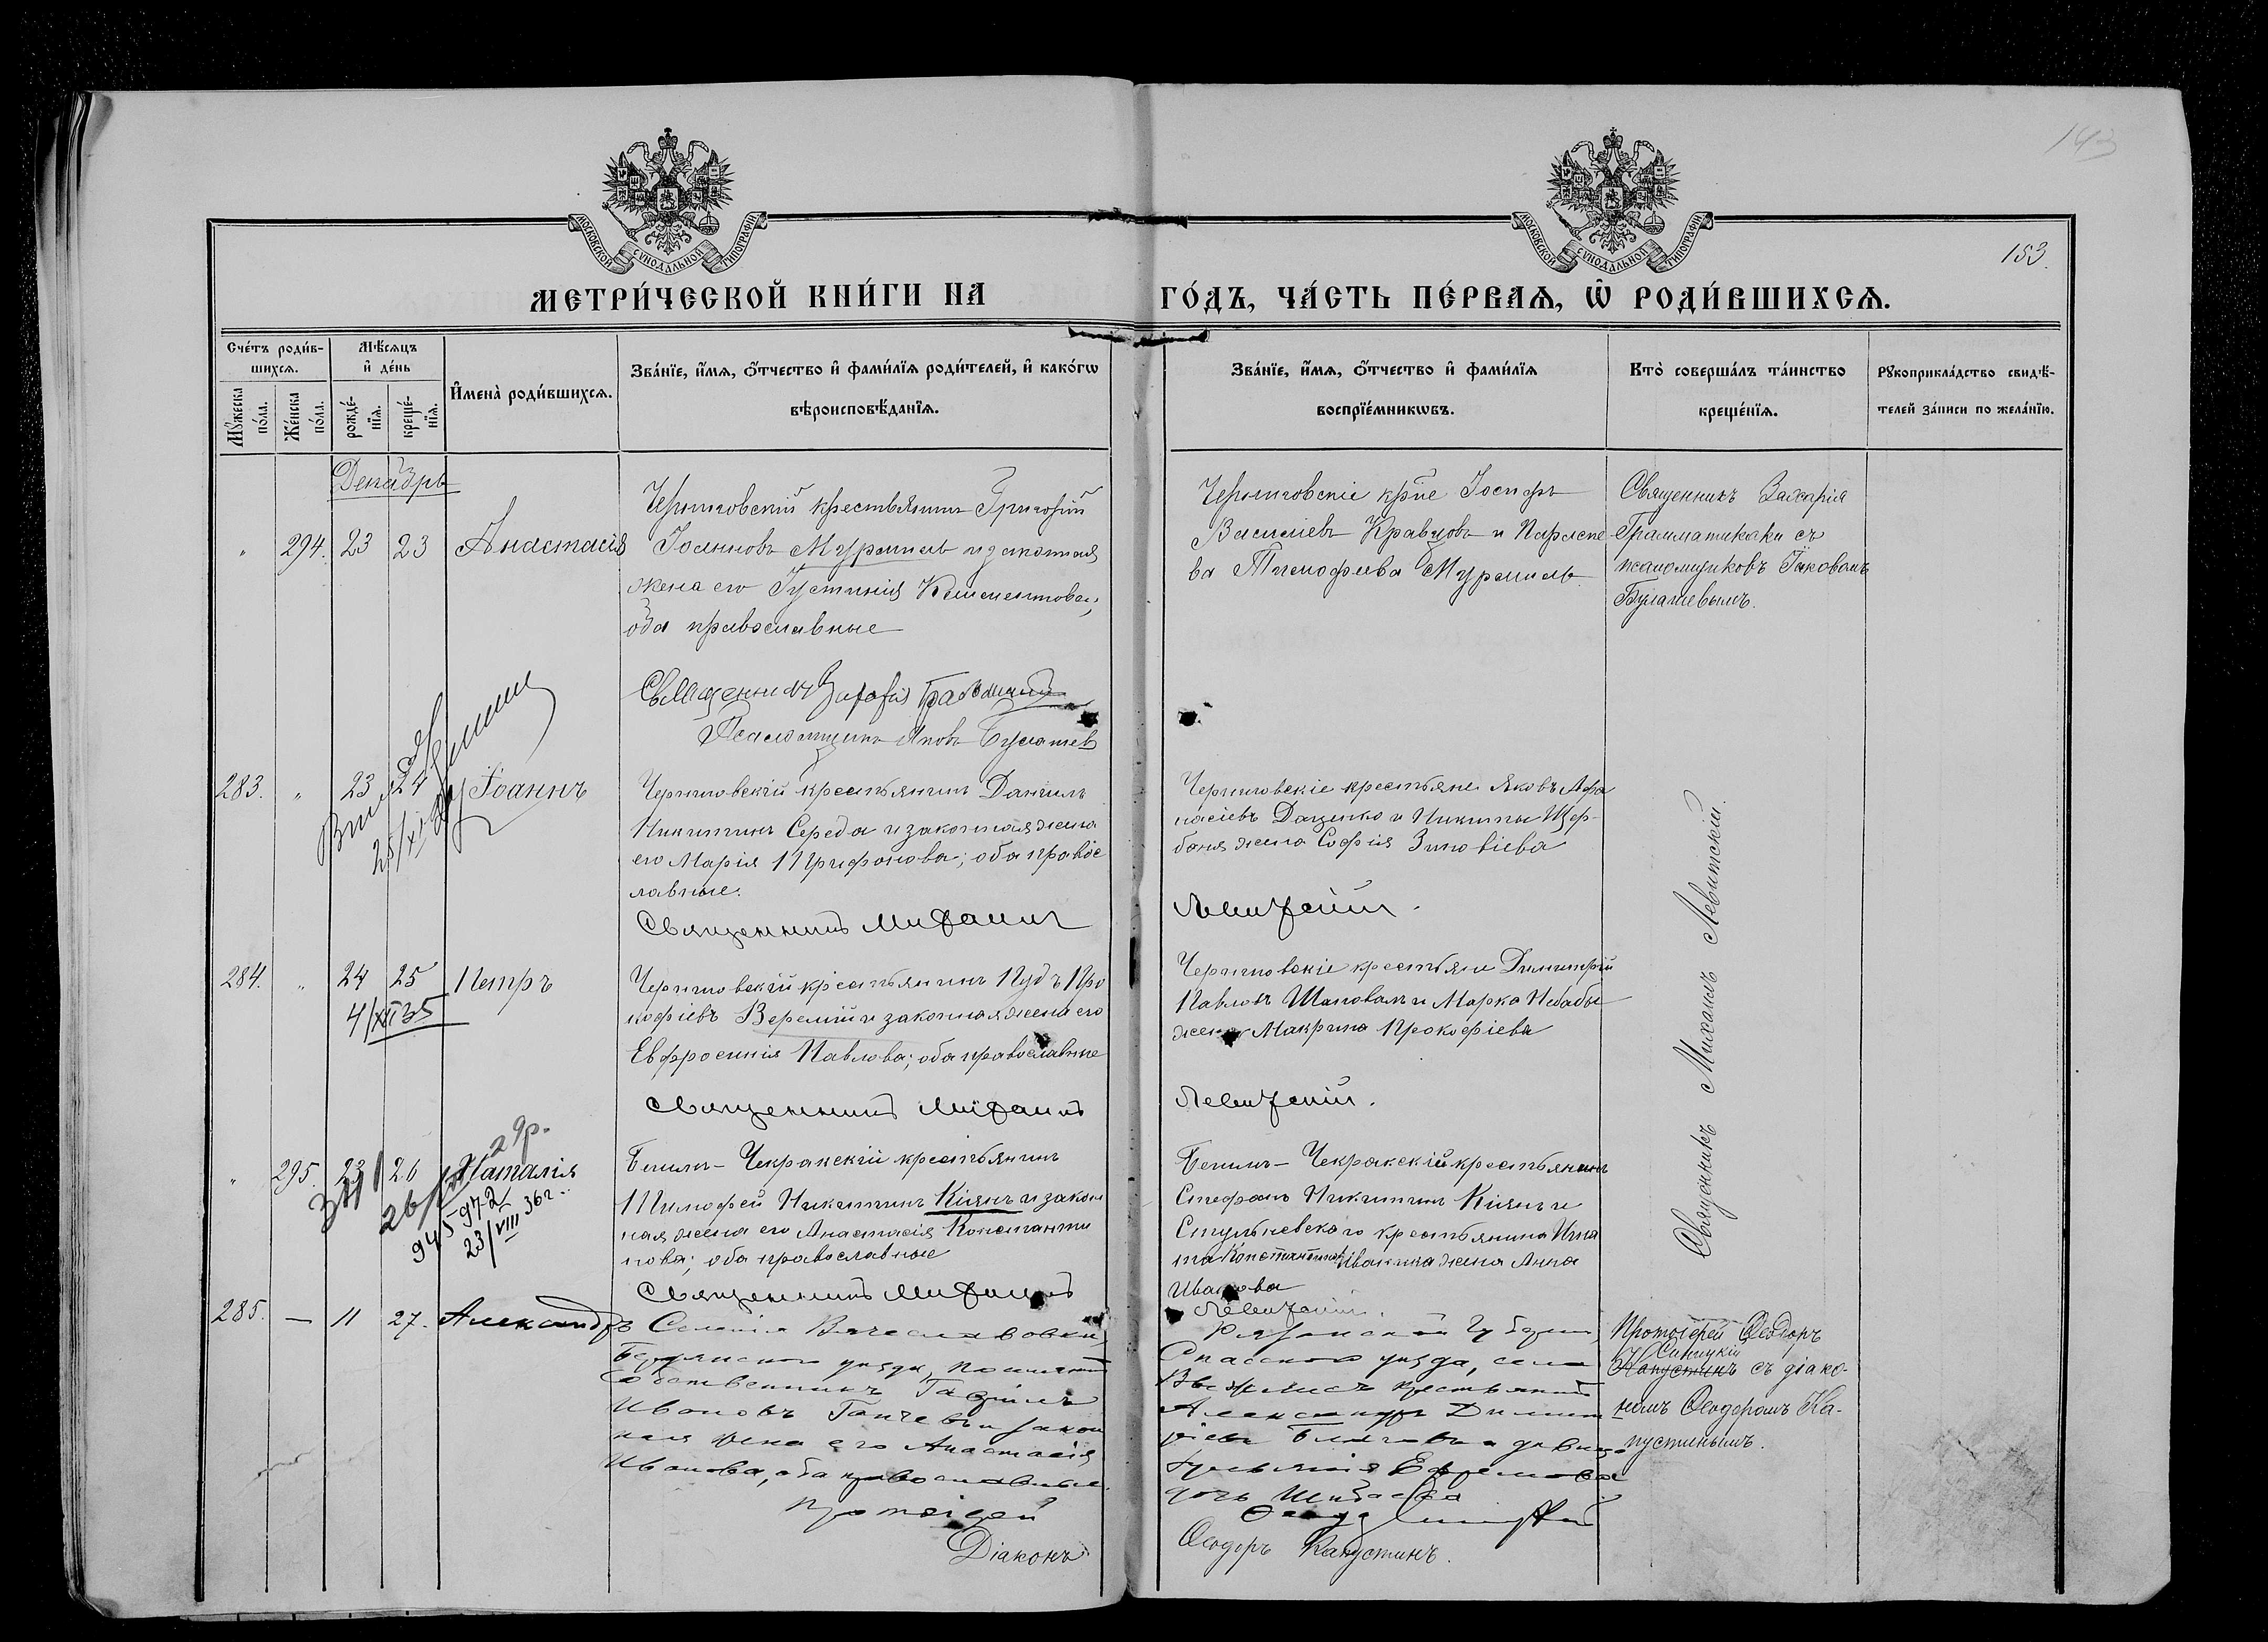 143
153.
МОСКОВСКОЙ СѴНОДАЛЬНОЙ ТИПОГРАФІИ
МОСКОВСКОЙ СѴНОДАЛЬНОЙ ТИПОГРАФІИ
МЕТРИ́ЧЕСКОЙ КНИ́ГИ НА
ГО́ДЪ, ЧА́СТЬ ПЕ́РВАѦ, Ѿ РОДИ́ВШИХСѦ.
Сче́тъ роди́в-
шихсѧ.
Мꙋ́жеска по́ла.
Же́нска по́ла.
Мѣ́сѧцъ
и҆ де́нь
рожде́-
нїѧ.
креще́-
нїѧ.
И҆мена̀ роди́вшихсѧ.
Зва́нїе, и҆́мѧ, ѻ҆́тчество и҆ фами́лїѧ роди́телей, и҆ како́гѡ
вѣроисповѣ́данїѧ.
Зва́нїе, и҆́мѧ, ѻ҆́тчество и҆ фами́лїѧ
воспрїе́мникѡвъ.
Кто̀ соверша́лъ та́инство
креще́нїѧ.
Рꙋкоприкла́дство свидѣ́-
телей за́писи по жела́нїю.
Декабрь
" 294. 23 23 Анастасія
Черниговскій крестьянинъ Григорій
Іоанновъ Мурмиль и законная
жена его Густинія Климентова;
оба православные
Священникъ Захарія
Псаломщикъ Яковъ Булашев
Черниговскіе кр̃не Іосифъ
Василіевъ Кравцовъ и Параске
ва Тимофеева Мурмиль
Священникъ Захарія
Грамматикаки съ
псаломщиковъ Іаковомъ
Булашевымъ.
283. " 23 24 Іоаннъ
Черниговскій крестьянинъ Даніилъ
Никитинъ Середа и законная жена
его Марія Трифонова; оба правос
лавные.
Священникъ Михаилъ
Черниговскіе крестьяне Яковъ Афа
насіевъ Даценко и Никиты Щер-
боня жена Софія Зиновіева
Левитскій.
284. " 24 25 Петръ
4/XII 35
Черниговскій крестьянинъ Іудъ Про
кофіевъ Веремій и законная жена его
Евфросинія Павлова; оба православные
Священникъ Михаилъ
Черниговскіе крестьяне Димитрій
Павловъ Шаповалъ и Марка Небабы
жена Макрина Прокофіева
Левитскій.
" 295. 23 26 Наталія
29р.
945972
23/VIII 36г.
Бешилъ-Чекракскій крестьянинъ
Тимофей Никитинъ Кіянъ и закон
ная жена его Анастасія Константи
нова; оба православные
Священникъ Михаилъ
Бешилъ-Чекракскій крестьянинъ
Стефанъ Никитинъ Кіянъ и
Стульневского крестьянина Игна
та Константинова Иваника жена Анна
Иванова
Левитскій.
Священникъ Михаилъ Левитскій.
285. — 11 27. Александръ
Селенія Вячеславовки,
Бердянского уѣзда,
собственникъ Гавріилъ
Ивановъ Ганчевъ и закон
ная жена его Анастасія
Иванова, оба православные.
Протоіерей
Діаконъ
Рязанской Губерніи,
Спасского уѣзда, села
крестьянинъ
Александръ Димит
ріевъ и дѣвица
Ефремова
дочь
Ѳеодоръ Капустинъ.
Протоіерей Ѳеодоръ
Синицкій
Капустинъ съ діако-
номъ Ѳеодоромъ Ка-
пустинымъ.